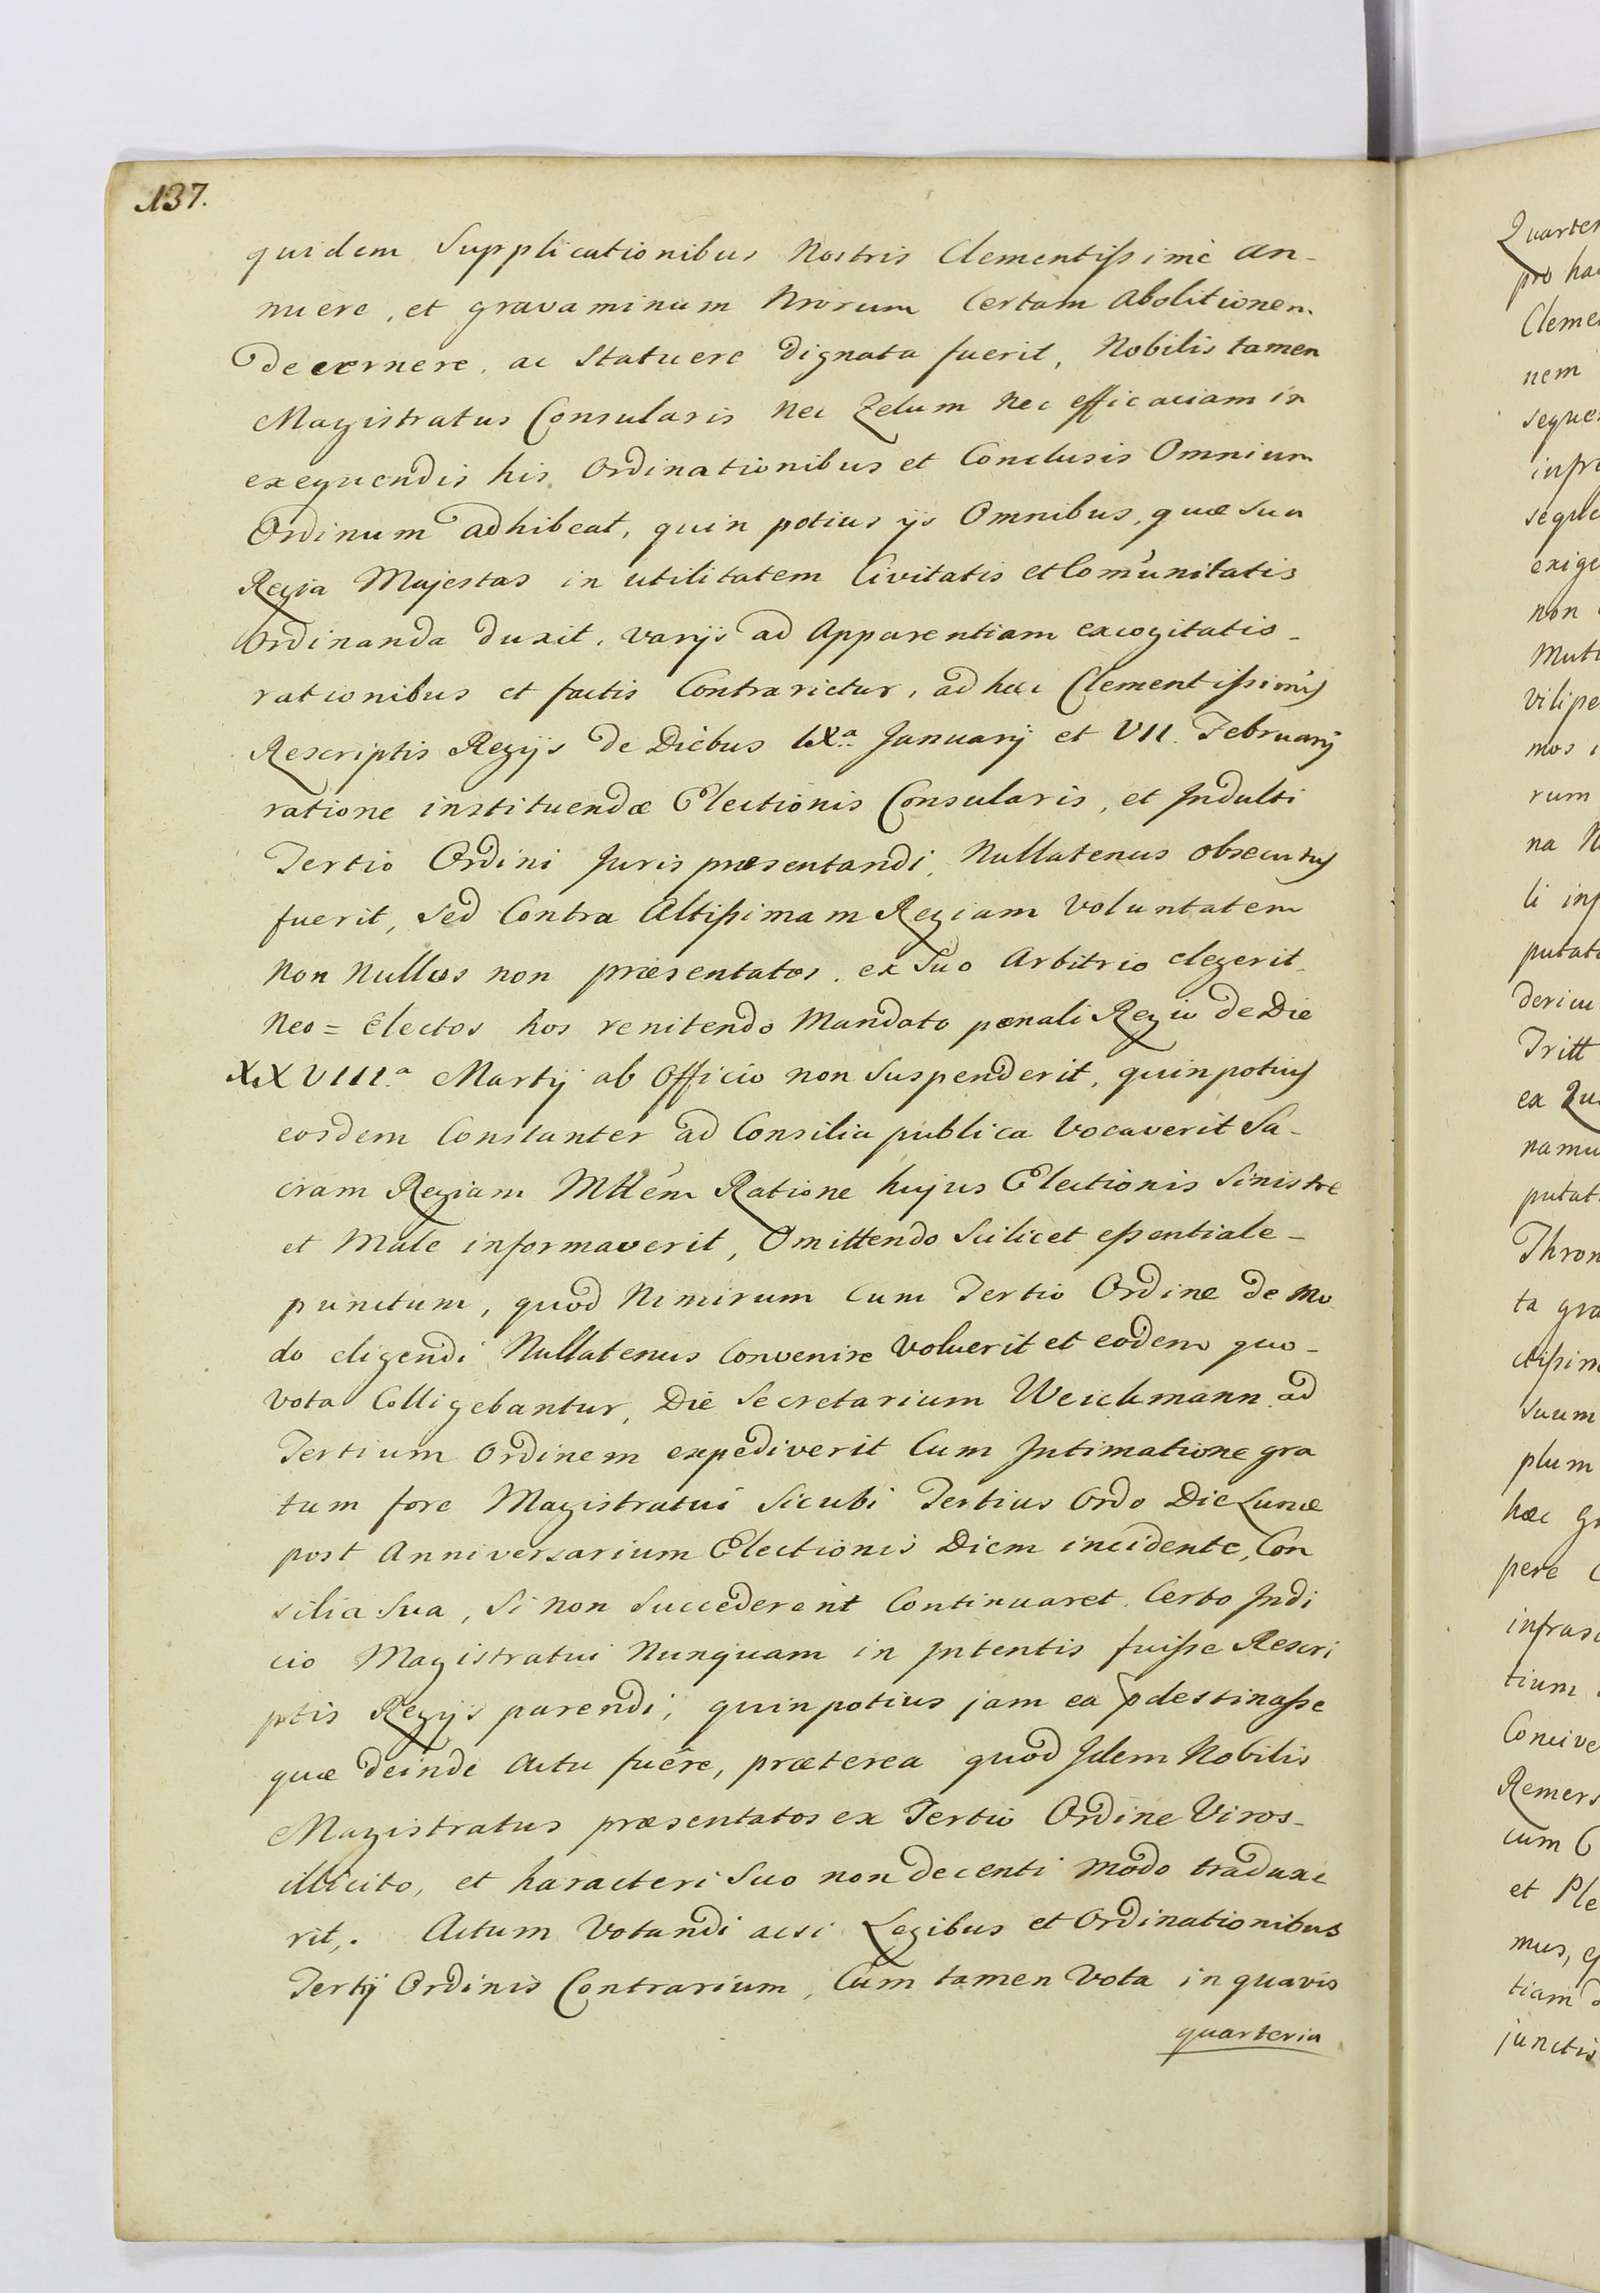 137.
quidem Supplicationibus Nostris Clementissimè an-
nuere, et gravaminum Nrorum Certam Abolitionem
decernere, ac Statuere dignata fuerit, Nobilis tamen
Magistratus Consularis nec Zelum nec efficaciam in
exequendis his Ordinationibus et Conclusis Omnium
Ordinum adhibeat, quin potius ijs Omnibus, quæ Sua
Regia Majestas in utilitatem Civitatis et Com̃unitatis
Ordinanda duxit, varijs ad Apparentiam excogitatis-
rationibus et factis Contrarietur, ad hæc Clementissimis
Rescriptis Regijs de Diebus IXa Januarij et VII. Februarij
ratione instituendæ Electionis Consularis, et Indulti
Tertio Ordini Juris præsentandi, Nullatenus obsecutus
fuerit, sed Contra Altissimam Regiam Voluntatem
Non Nullos non præsentatos, ex Suo Arbitrio elegerit
Neo=Electos hos renitendo Mandato pœnali Regio de Die
XXVIIIa Martij ab Officio non Suspenderit, quinpotius
eosdem Constanter ad Consilia publica Vocaverit Sa-
cram Regiam Mttem Ratione hujus Electionis Sinistre
et Male informaverit, Omittendo Scilicet essentiale-
punctum, quod Nimirum Cum Tertio Ordine de Mo
do eligendi Nullatenus Convenire Voluerit et eodem quo-
vota Colligebantur, Die Secretarium Weickmann ad
Tertium Ordinem expediverit Cum Intimatione gra
tum fore Magistratui Sicubi Tertius Ordo Die Lunæ
post Anniversarium Electionis Diem incidente, Con
silia Sua, Si non Succederent Continuaret. Certo Indi
cio Magistratui Nunquam in Intentis fuisse Rescri
ptis Regijs parendi, quinpotius jam ea pdestinasse
quæ deinde Actu fuêre, præterea quod Idem Nobilis
Magistratus præsentatos ex Tertio Ordine Viros-
illicito, et haracteri Suo non decenti modo traduxe
rit,. Actum Votandi acsi Legibus et Ordinationibus
Tertij Ordinis Contrarium, Cum tamen Vota in quavis
quarteria
Quarter
pro ha
Cleme
nem
seque
infr
seque
exige
non
Mut
vilipe
mos i
rum
na N
li inf
putat
dericu
Tritt
ex Qu
namu
putat
Thron
ta gra
ctissim
Suum
plum
hæc G
pere C
infras
tium
Concive
Remers
cum C
et Ple
mus,
tiam
junctis